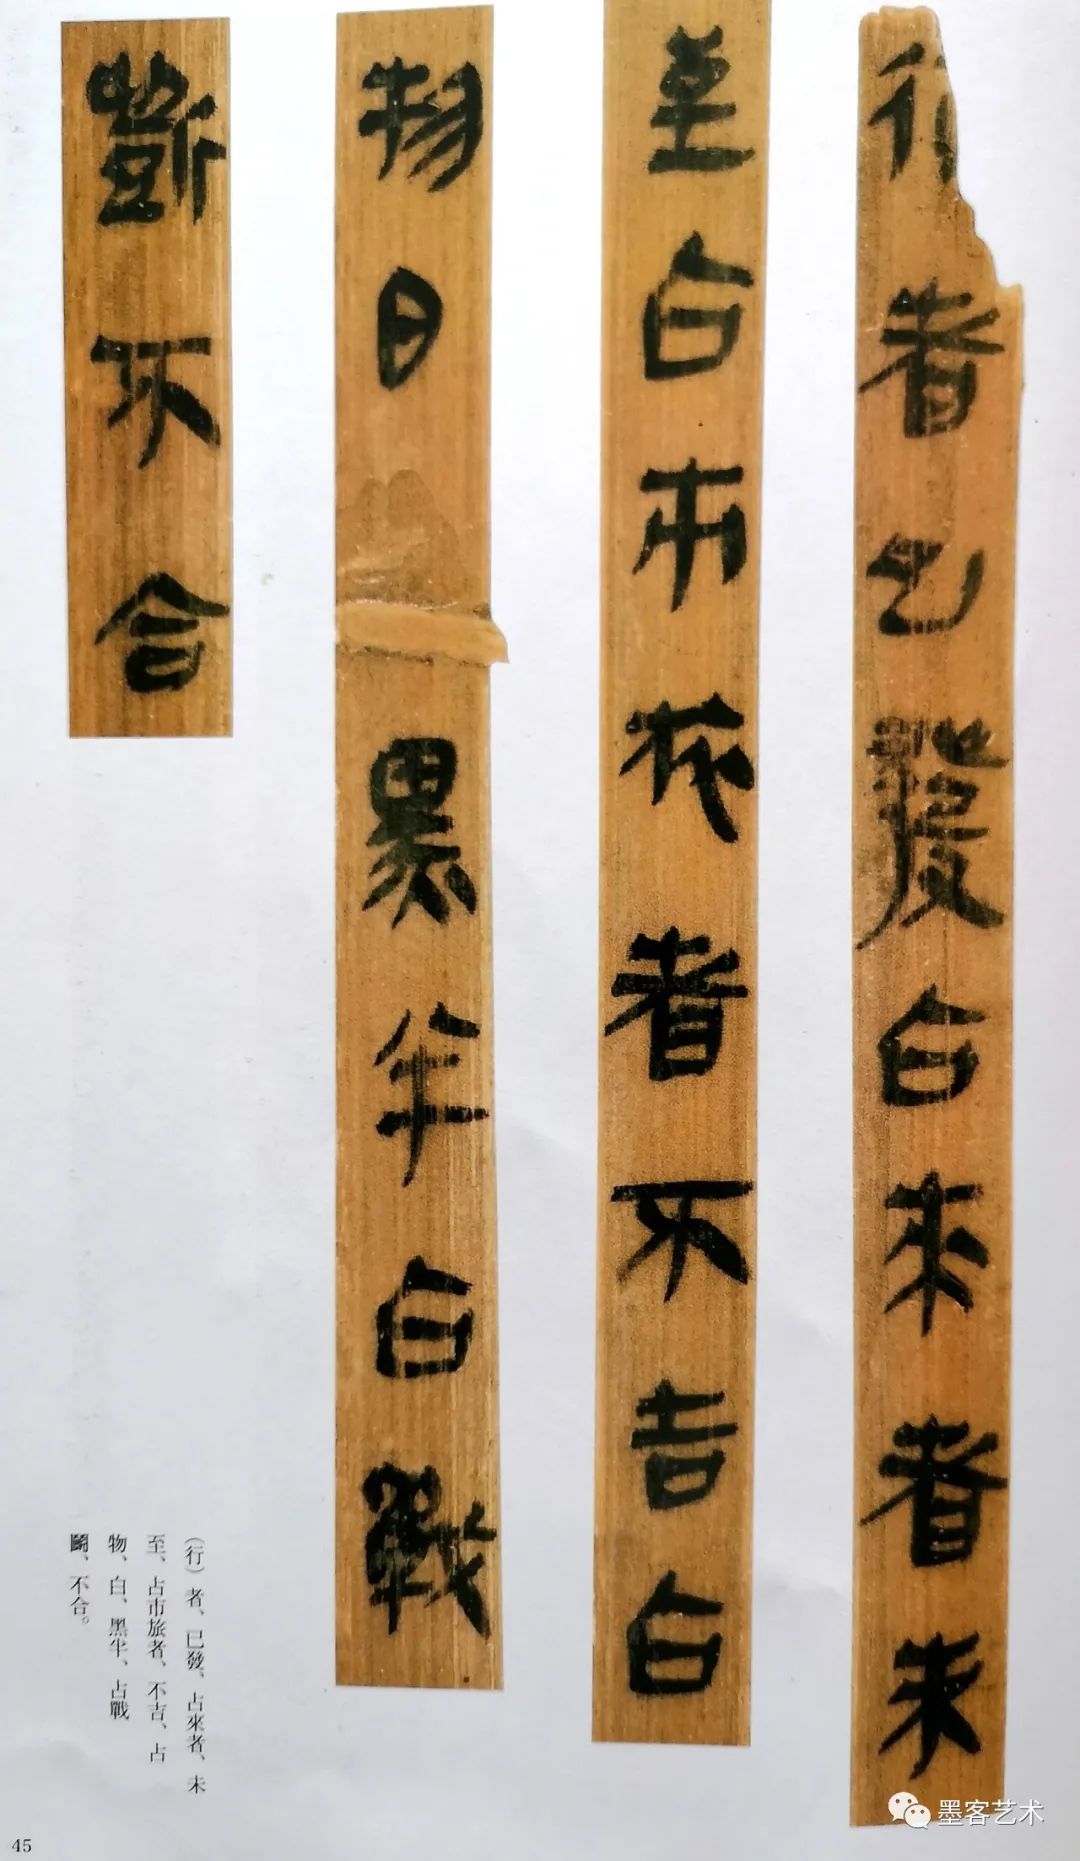 行者已發占來者未
至占市旅者不吉占
物白黑半占戰
斲不合
（行）者、已發、占來者、未
至、占市旅者、不吉、占
物、白、黑半、占戰
鬭、不合。
45
墨客艺术